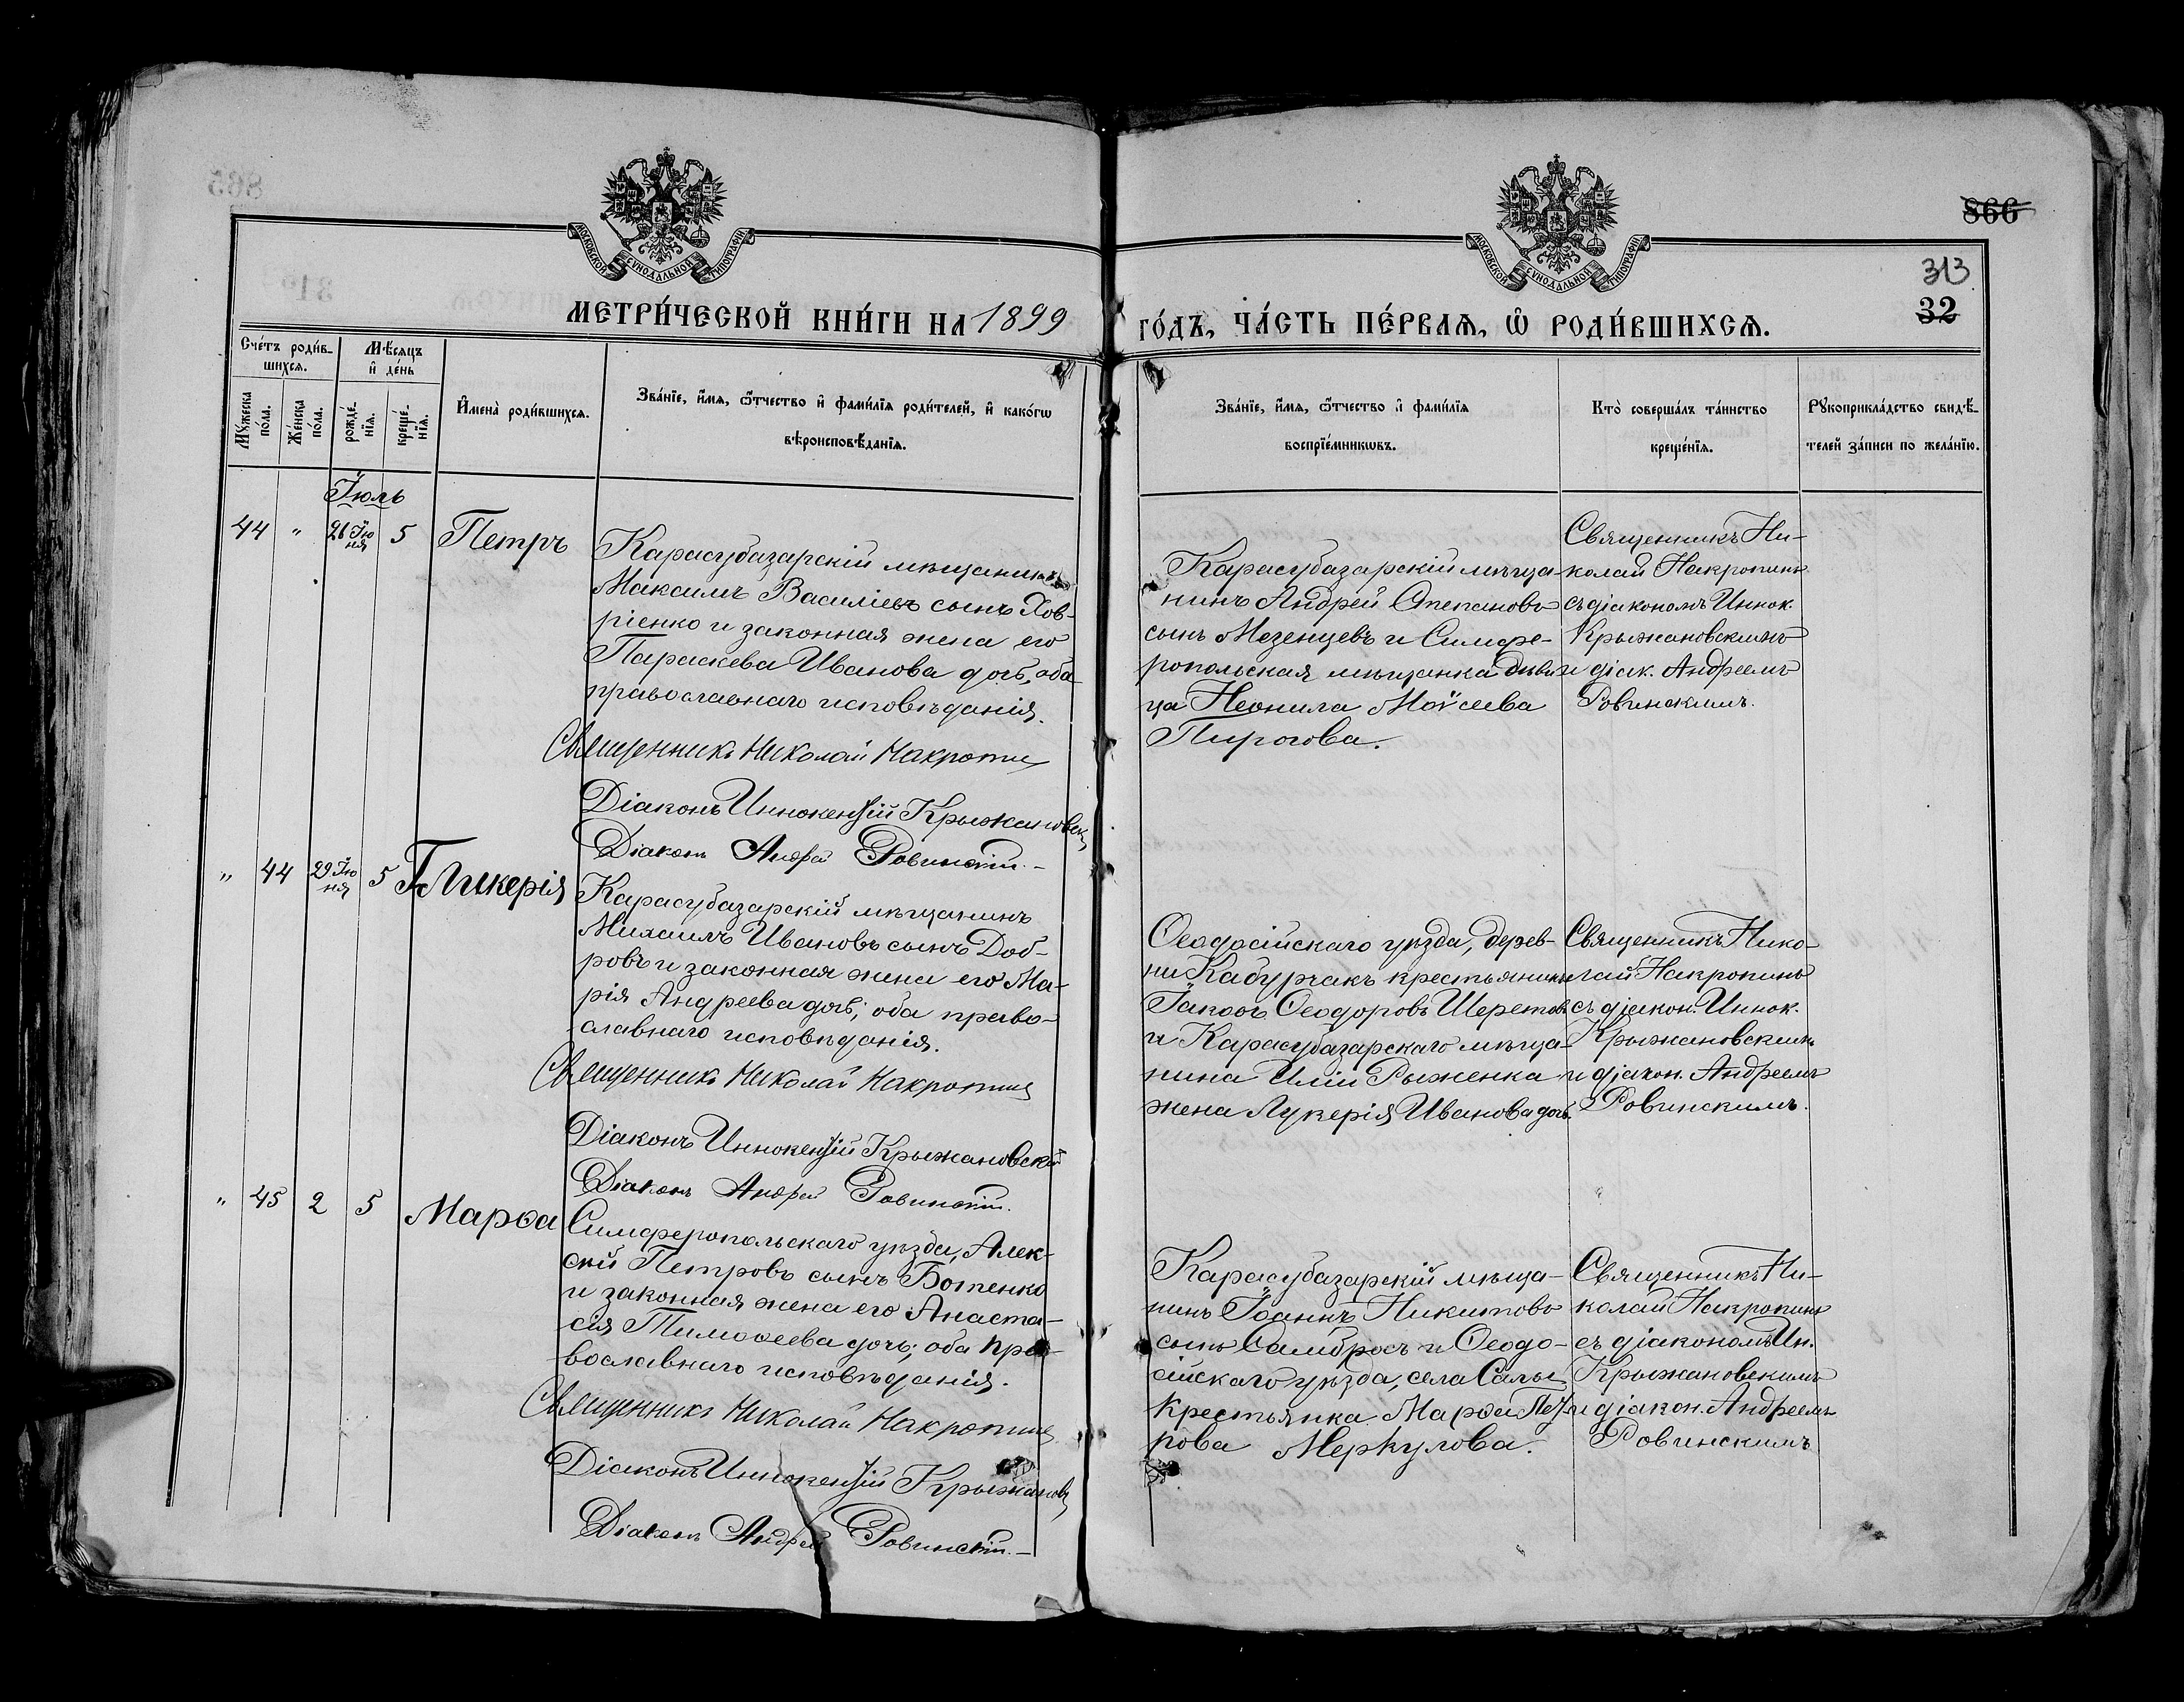 866
313
32
МОСКОВСКОЙ СѴНОДАЛЬНОЙ ТИПОГРАФІИ
МОСКОВСКОЙ СѴНОДАЛЬНОЙ ТИПОГРАФІИ
МЕТРИ́ЧЕСКОЙ КНИ́ГИ НА 1899
ГО́ДЪ, ЧА́СТЬ ПЕ́РВАЯ, Ѡ РОДИ́ВШИХСЯ.
Сче́тъ роди́в-
шихся.
Мѣ́сяцъ
и҆ де́нь
Мꙋ́жеска
по́ла.
Же́нска
по́ла.
рожде́-
нїя.
креще́-
нїя.
И҆мена̀ роди́вшихся.
Зва́нїе, и҆́мя, ѻ҆́тчество и҆ фами́лїя роди́телей, и҆ како́гѡ
вѣроисповѣ́данїя.
Зва́нїе, и҆́мя, ѻ҆́тчество и҆ фами́лїя
воспрїе́мникѡвъ.
Кто̀ соверша́лъ та́инство
креще́нїя.
Рꙋкоприкла́дство свидѣ́-
телей за́писи по жела́нїю.
Іюль
44 „ 26 Ію
ня 5 Петръ
Карасубазарскій мѣщанинъ
Максимъ Василіевъ сынъ Хов-
ріенко и законная жена его
Параскева Иванова дочь, оба
православнаго исповѣданія.
Священникъ Николай Накропин
Діаконъ Иннокентій Крыжановск
Діаконъ Андрей Ровинскій.-
Карасубазарскій мѣща-
нинъ Андрей Степановъ
сынъ Мезенцевъ и Симфе-
ропольская мѣщанка дѣви
ца Неонила Моѵсеева
Пирогова.
Священникъ Ни-
колай Накропинъ
съ діакономъ Иннок.
Крыжановскимъ
и діак. Андреемъ
Ровинскимъ.
„ 44 29 Ію
ня 5 Гликерія
Карасубазарскій мѣщанинъ
Михаилъ Ивановъ сынъ Доб-
ровъ и законная жена его Ма-
рія Андреева дочь; оба право-
славнаго исповѣданія.
Священникъ Николай Накропин
Діаконъ Иннокентій Крыжановскій
Діаконъ Андрей Ровинскій.
Ѳеодосійскаго уѣзда, дерев-
ни Кабурчакъ крестьянинъ
Іаковъ Ѳеодоровъ Шеретовъ
и Карасубазарскаго мѣща-
нина Иліи Рыженка
жена Лукерія Иванова дочь.
Священникъ Нико-
лай Накропинъ
съ діакон. Иннок.
Крыжановскимъ
и діакон. Андреемъ
Ровинскимъ.
„ 45 2 5 Марѳа
Симферопольскаго уѣзда, Алек-
сѣй Петровъ сынъ Ботенко
и законная жена его Анаста-
сія Тимоѳеева дочь; оба пра-
вославнаго исповѣданія.
Священникъ Николай Накропин
Діаконъ Иннокентій Крыжановск
Діаконъ Андрей Ровинскій.-
Карасубазарскій мѣща-
нинъ Іоаннъ Никитовъ
сынъ Самбросъ и Ѳеодо-
сійскаго уѣзда, села Салы
крестьянка Марѳа Пет-
рова Меркулова.
Священникъ Ни-
колай Накропинъ
съ діакономъ Ин.
Крыжановскимъ
и діакон. Андреемъ
Ровинскимъ